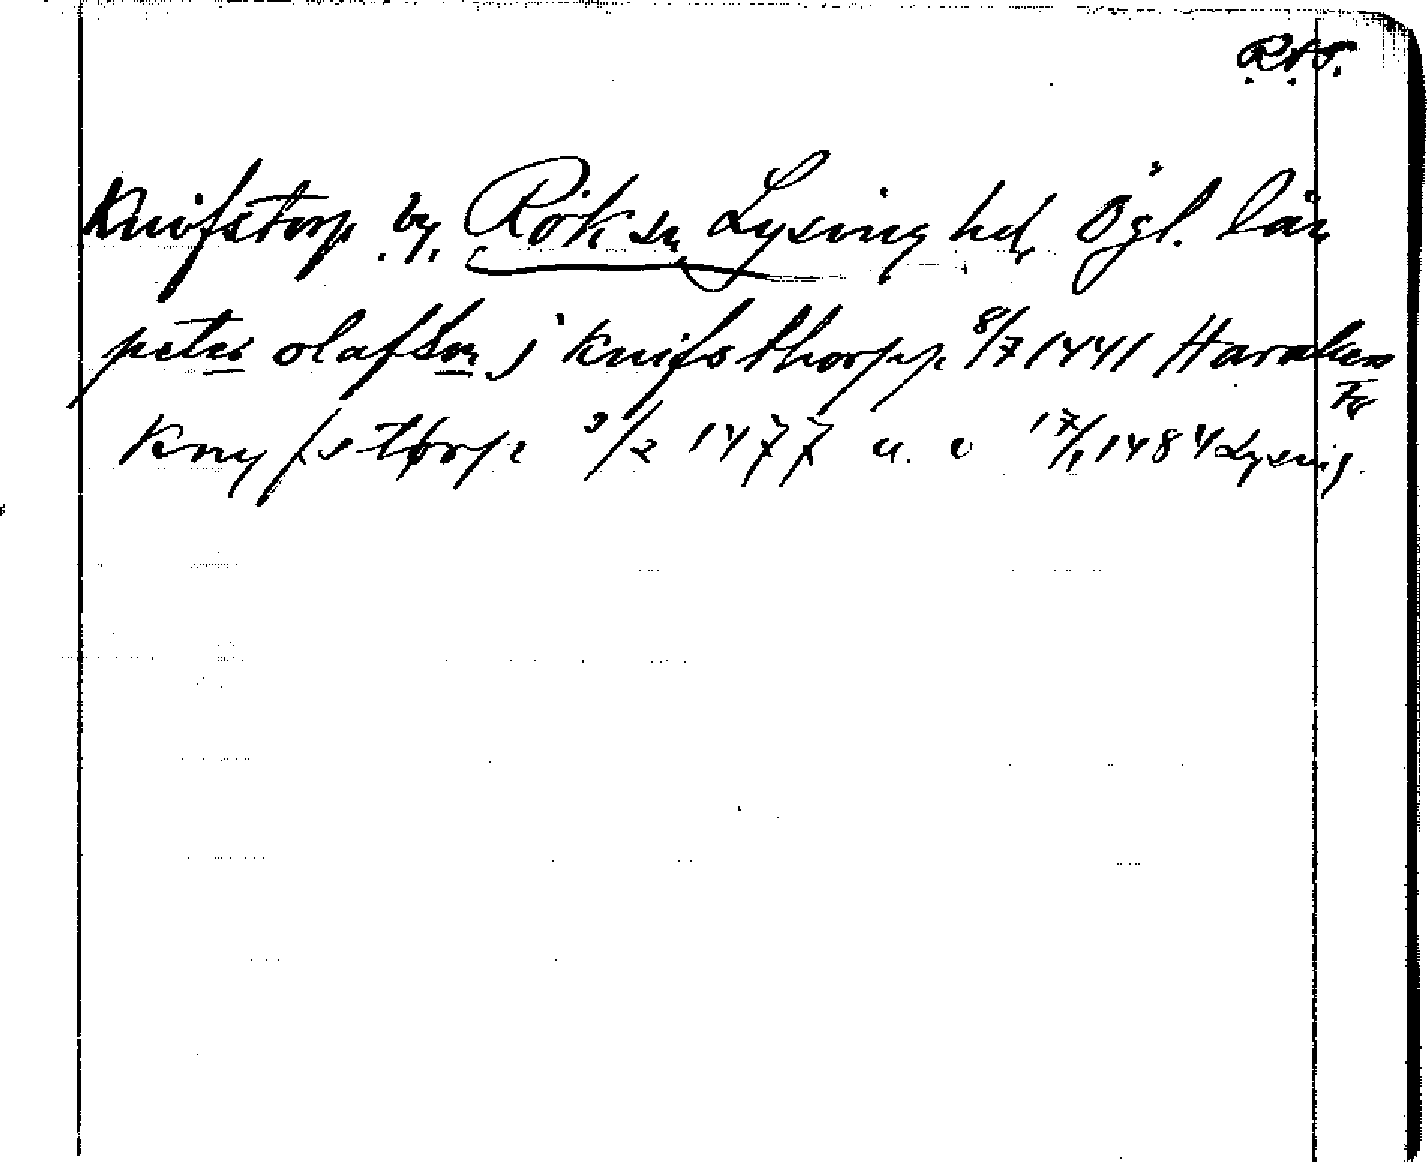 R.A.P.
Knifstorp by, Rök sn Lysing hd, Ögl. län
peter olafson j knifsthorpp 8/7 1441 Haraker
Fg
Knyfstorp 9/2 1477 u. o 17/1 1484 Lysing.